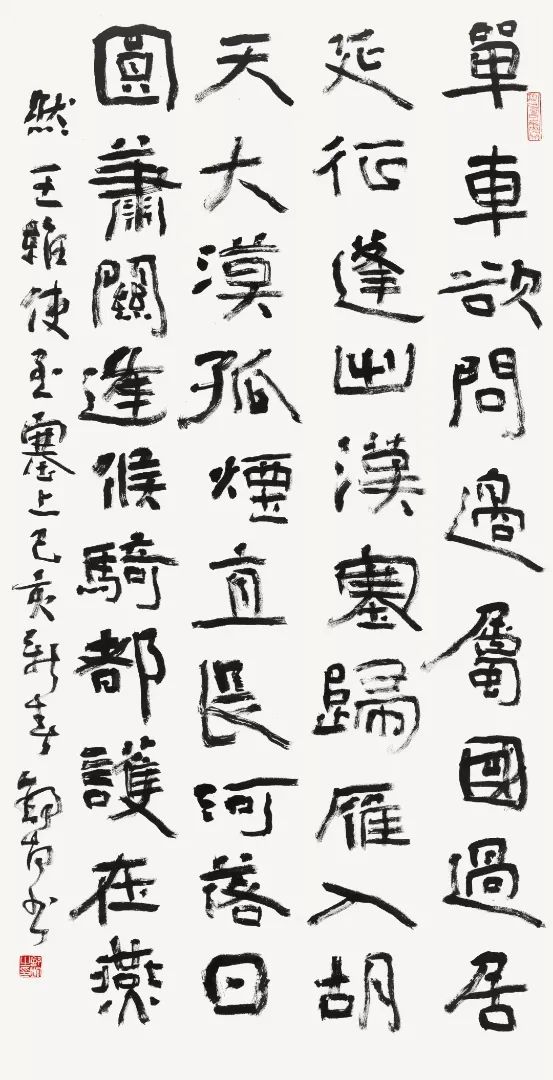 單車欲問邊屬國過居
延征蓬出漢塞歸雁入胡
天大漠孤煙直長河落日
圓蕭關逢候騎都護在燕
然王維使至塞上己亥新春鄒方書